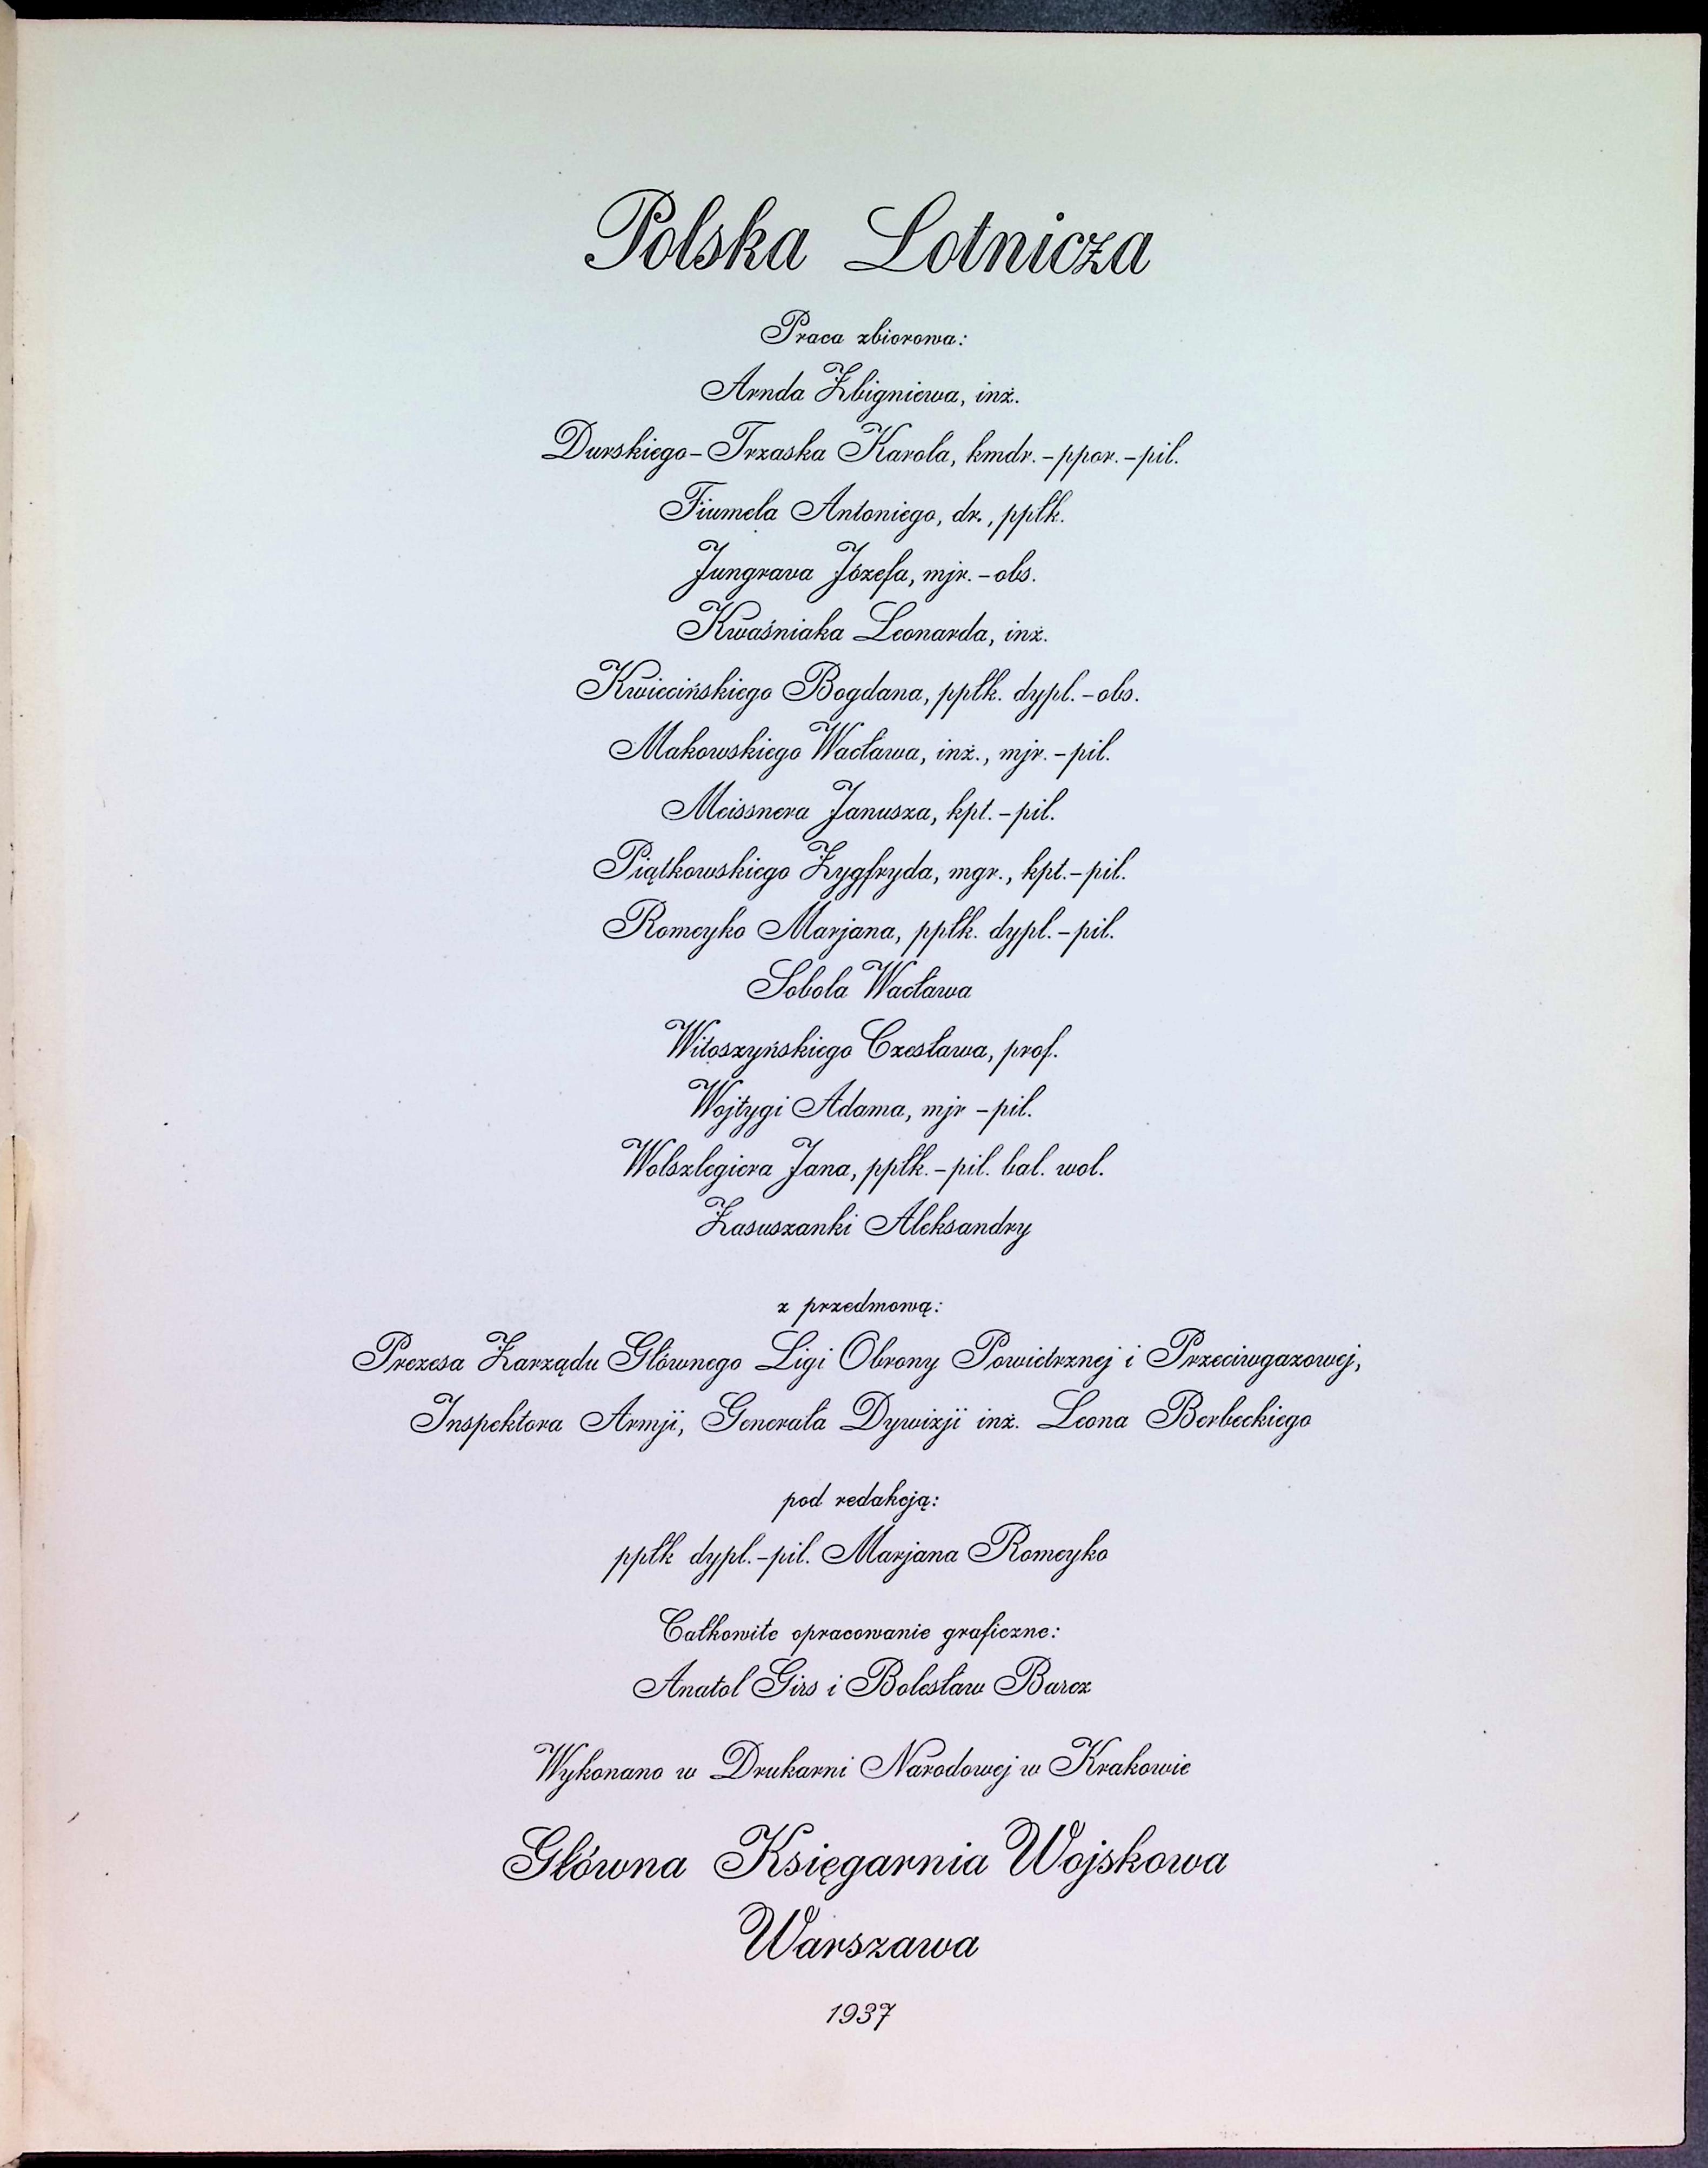 Polska Lotnicza
Praca zbiorowa:
Arnda Zbigniewa, inż.
Durskiego-Trzaska Karola, kmdr.-ppor.-pil.
Fiumela Antoniego, dr., ppłk.
Jungrava Józefa, mjr.-obs.
Kwaśniaka Leonarda, inż.
Kwiecińskiego Bogdana, ppłk. dypl.-obs.
Makowskiego Wacława, inż., mjr.-pil.
Meissnera Janusza, kpt.-pil.
Piątkowskiego Zygfryda, mgr., kpt.-pil.
Romeyko Marjana, ppłk. dypl.-pil.
Sobola Wacława
Witoszyńskiego Czesława, prof.
Wojtygi Adama, mjr -pil.
Wolszlegiera Jana, ppłk.-pil. bal. wol.
Zasuszanki Aleksandry
z przedmową:
Prezesa Zarządu Głównego Ligi Obrony Powietrznej i Przeciwgazowej,
Inspektora Armji, Generała Dywizji inż. Leona Berbeckiego
pod redakcją:
ppłk dypl.-pil. Marjana Romeyko
Całkowite opracowanie graficzne:
Anatol Girs i Bolesław Barcz
Wykonano w Drukarni Narodowej w Krakowie
Główna Księgarnia Wojskowa
Warszawa
1937